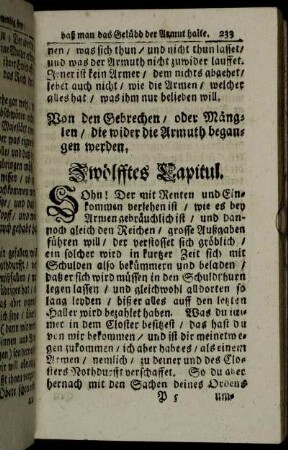 daß man das Gelübd der Armut halte. 233
nen / was sich thun / und nicht thun lasset /
und was der Armuth nicht zuwider lauffet.
Jener ist kein Armer / dem nichts abgehet /
lebet auch nicht / wie die Armen / welcher
alles hat / was ihm nur belieben will.
Von den Gebrechen / oder Mäng-
len / die wider die Armuth began-
gen werden,
Zwölfftes Capitul.
Sohn! Der mit Renten und Ein-
kommen versehen ist / wie es bey
Armen gebräuchlich ist / und dan-
noch gleich den Reichen / grosse Außgaben
führen will / der verstosset sich gröblich /
ein solcher wird in kurtzer Zeit sich mit
Schulden also bekümmern und beladen /
daß er sich wird müssen in den Schuldthurn
legen lassen / und gleichwohl alldorten so
lang leyden / biß er alles auff den letzten
Haller wird bezahlet haben. Was du im-
mer in dem Closter besitzest / das hast du
von mir bekommen / und ist dir meinetwe-
gen zukommen / ich aber hab es / als einem
Armen / nemlich / zu deiner und des Clo-
sters Nothdurfft verschaffet. So du aber
hernach mit den Sachen deines Ordens
P 5 um-